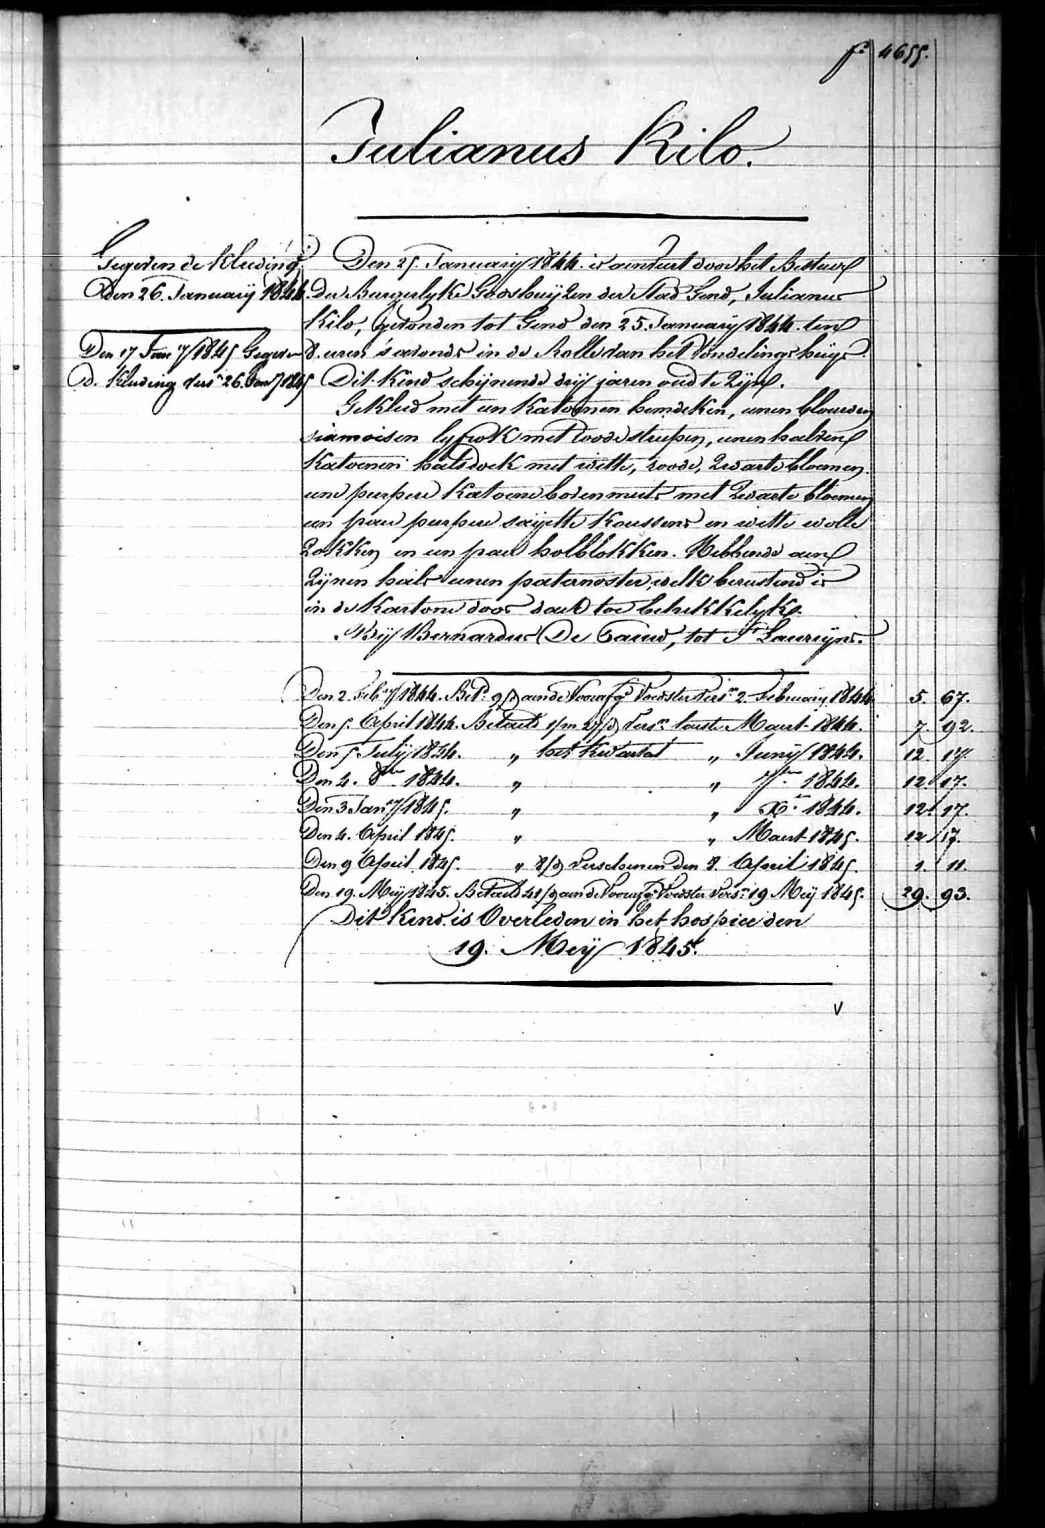 f° 4655.
Julianus Kilo.
Gegeven de Kleeding
den 26. Januarÿ 1844.
Den 17 Janrÿ 1845 Gegeven
d. Kleeding vers.n 26. Janrÿ 1845
Den 25. Januarÿ 1844. is aenveert door het Bestuer
der Burgerlyke Godshuÿzen der Stad Gend, Julianus
Kilo, gevonden tot Gend den 25. Januarÿ 1844. ten
8. uren s'avonds in de Rolle van het Vondelingshuÿs.
Dit kind schÿnende drÿ jaren oud te Zÿn.
Gekleed met een Katoenen hemdeken, eenen blouwen
siamoisen lyfrok met roode streepen, eenen halven
Katoenen halsdoek met witte, roode, Zwarte bloemen.
eene purpere Katoene bovenmuts met Zwarte bloemen
een paer purpere saÿette Koussens en witte wolle
Zokken en een paer holblokken. Hebbende aen
Zÿnen hals eenen paternoster, welk berustend is
in de Kartons door daer toe betrekkelyke.
Bÿ Bernardus De Pauw, tot St Laureÿns.
Den 2. Feb.rÿ 1844. Bet.d 9/d aen de Voorafg.e Voedster vers.n 2. February 1844. 5. 67.
Den 5. April 1844. Betaeld 1/m 27/d vers.n laeste Maert 1844. 7. 92.
Den 5. Julÿ 1844. „ het Kwartael „ Junÿ 1844. 12. 17.
Den 4. 8ber 1844. „ „ 7ber 1844. 12. 17.
Den 3 Janrÿ 1845. „ „ Xer 1844. 12. 17.
Den 4. April 1845. „ „ Maert 1845. 12. 17.
Den 9 April 1845. „ 8/d verscheenen den 8. April 1845. 1. 11.
Den 19. Meÿ 1845. Betaeld 41/d aen de Voorafg.e Voedster vers.n 19 Meÿ 1845. 29. 93.
Dit Kind is Overleden in het hospice den
19. Meÿ 1845.